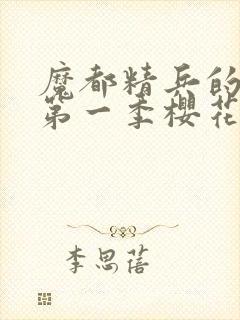 魔都精兵的
第一季樱花
李思蓓